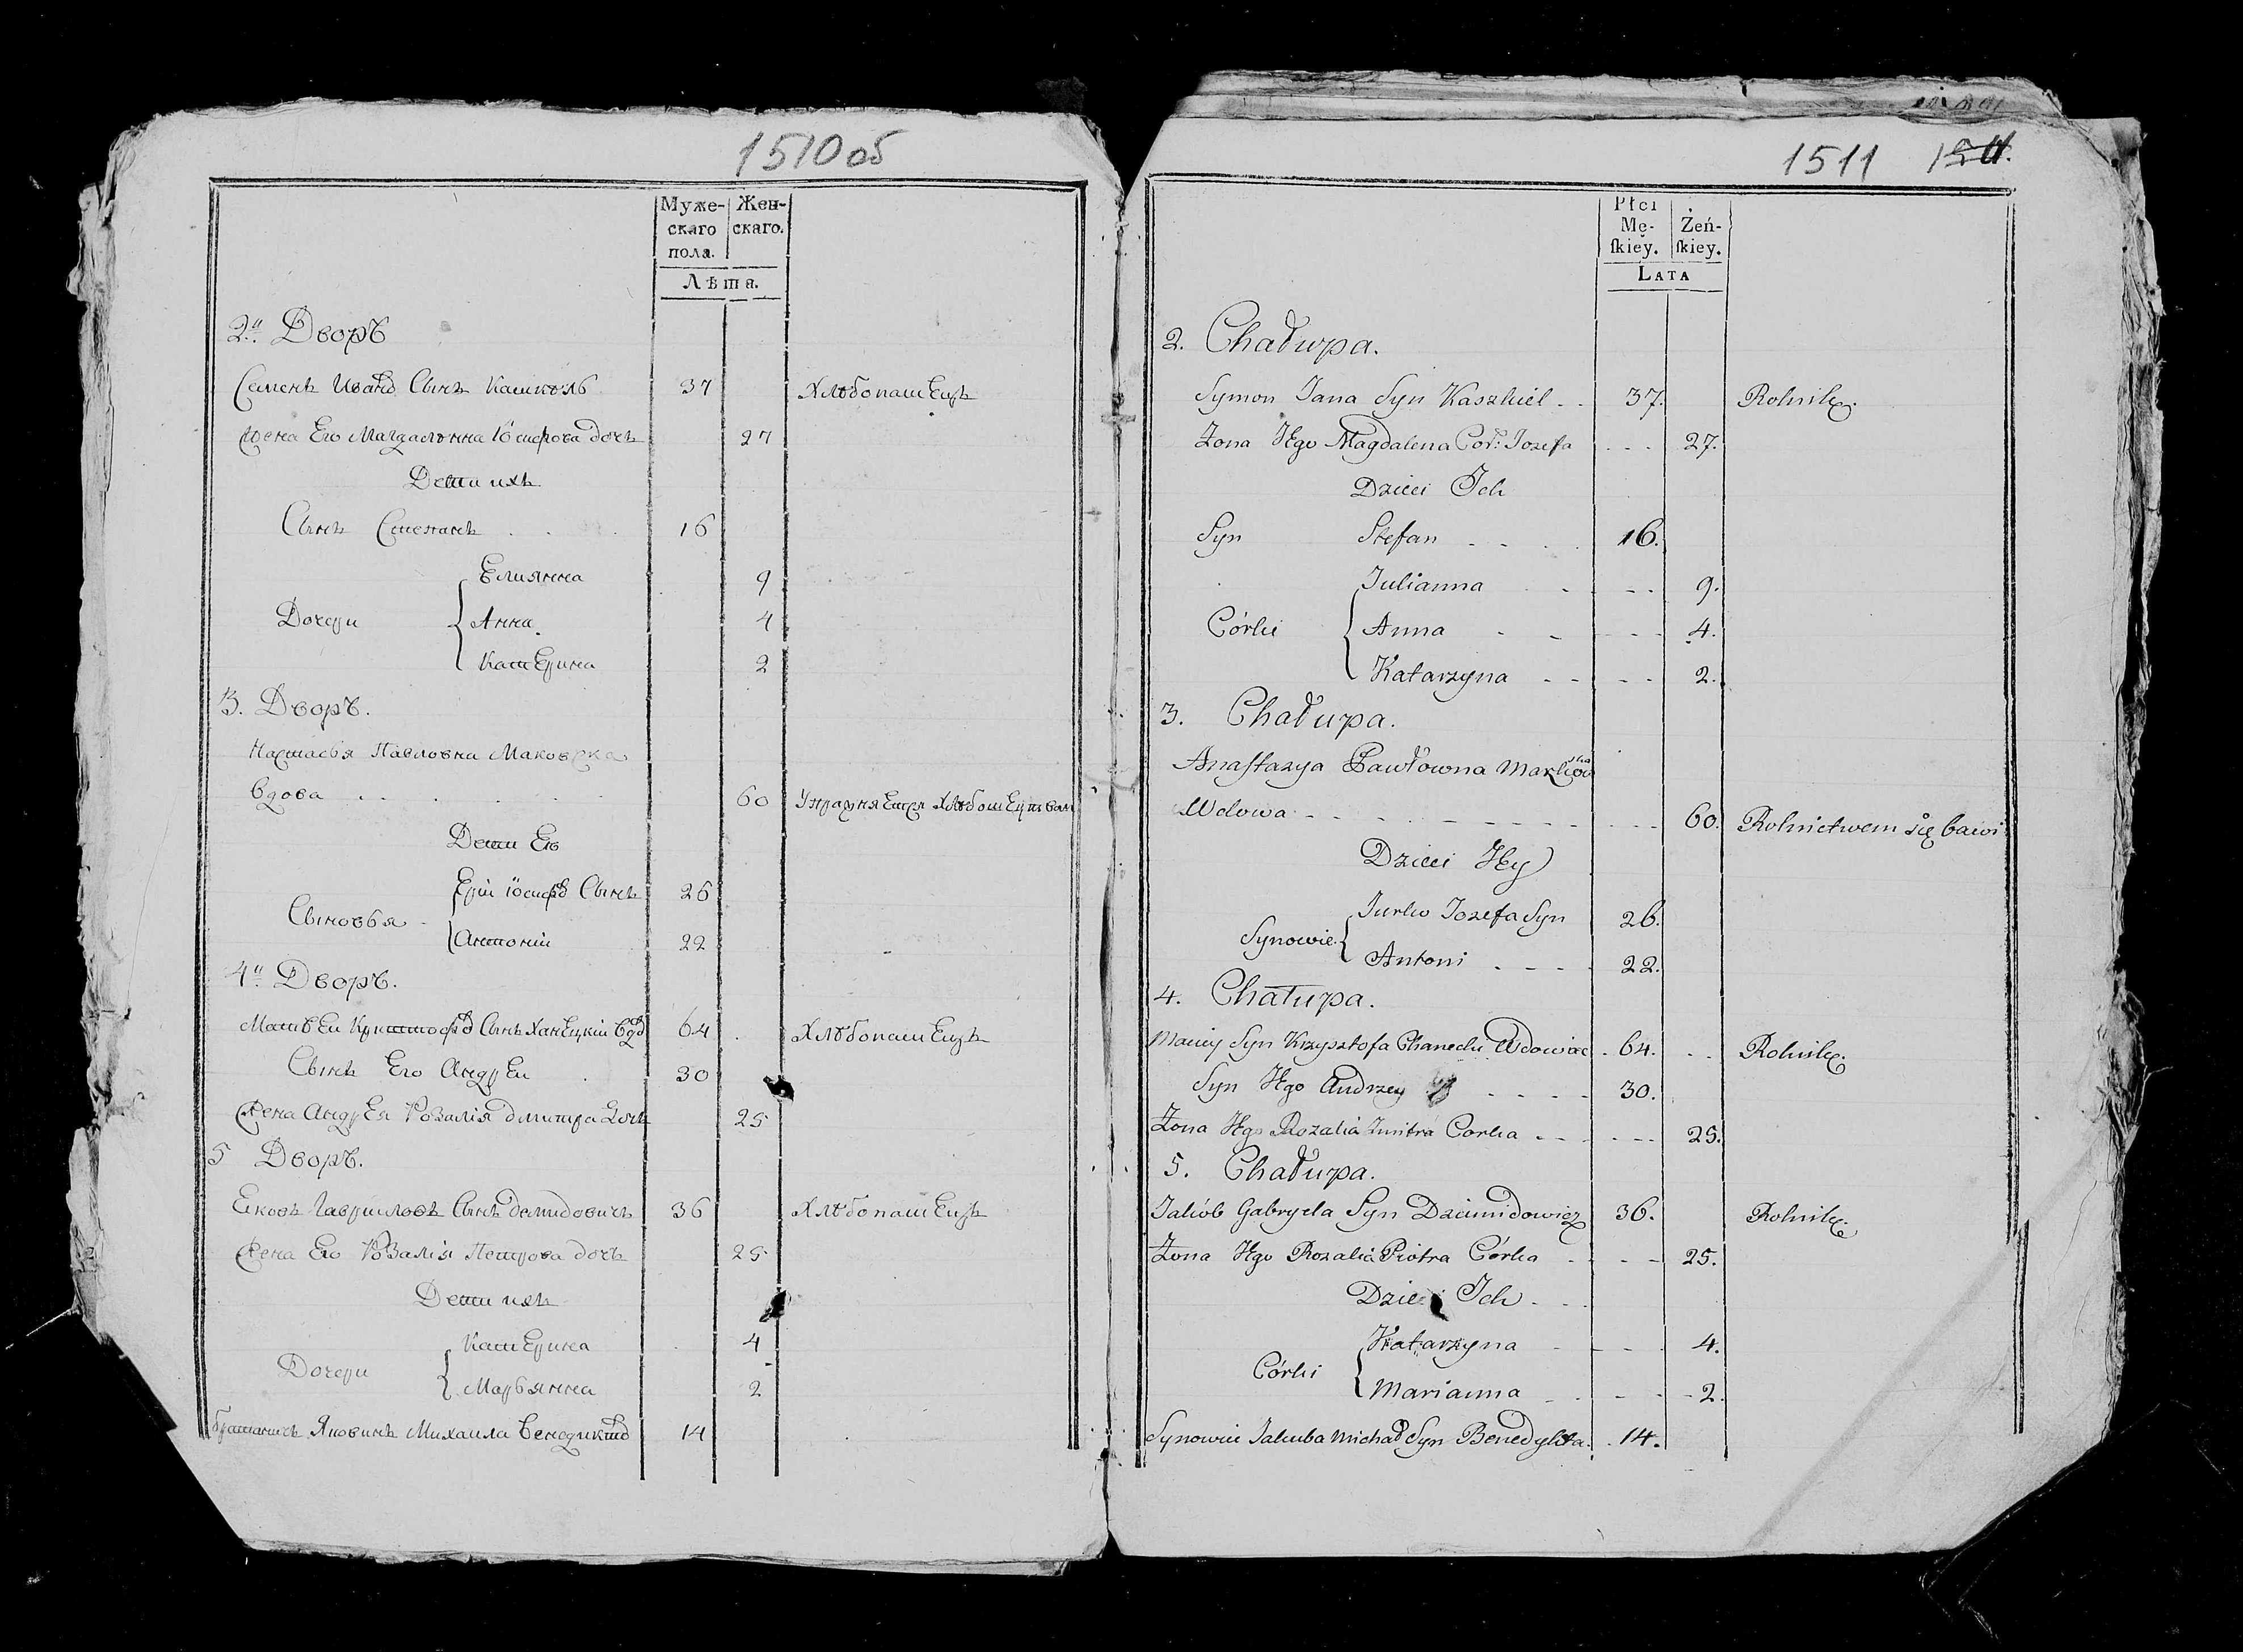 1510 об
Муже-
скаго
пола.
Жен-
скаго.
Лѣта.
2й Дворъ
Семенъ Иванов Сынъ Кашкель 37 Хлѣбопашецъ
Жена Его Магдаленна Іосифова дочь 27
Дети ихъ
Сынъ Степанъ 16
Елиянна 9
Дочери Анна 4
Катерина 2
3. Дворъ.
Настасья Павловна Маковска
вдова 60
Дети Ео
Ерій Іосифов Сынъ 26
Сыновья
Антоній 22
4й Дворъ.
Матвей Криштофов Сынъ Ханецкій вдов 64 Хлѣбопашецъ
Сынъ Его Андрей 30
Жена Андрея Розалія дмитра дочь 25
5 Дворъ.
Ековъ Гавриловъ Сынъ демидовичъ 36 Хлѣбопашецъ
Жена Ео Розалія Петрова дочь 25
Дети ихъ
Катерина 4
Дочери
Марьянна 2
братаничъ Яковинъ Михаила Бенедиктов 14
1511
Płci
Mę-
ſkiey.
Żeń-
ſkiey.
Lata
2. Chałupa.
Symon Jana Syn Kaszkiel 37. Rolnik.
Żona Jego Magdalena Cor: Jozefa 27.
Dzieci Ich
Syn Stefan 16.
Julianna 9.
Córki Anna 4.
Katarzyna 2.
3. Chałupa.
Anastazya Pawłowna
Wdowa 60. Rolnictwem się bawi
Dzieci Jey
Jurko Jozefa Syn 26.
Synowie
Antoni 22.
4. Chałupa.
Maciey Syn Krzysztofa Chanecki Wdowiec 64. Rolnik.
Syn Jego Andrzey 30.
Żona Jego Rozalia Dmitra Corka 25.
5. Chałupa.
Jakób Gabryela Syn Dziemidowicz 36. Rolnik.
Żona Jego Rozalia Piotra Córka 25.
Dzieci Ich
Katarzyna 4.
Córki
Marianna 2.
Synowiec Jakuba Michał Syn Benedykta 14.